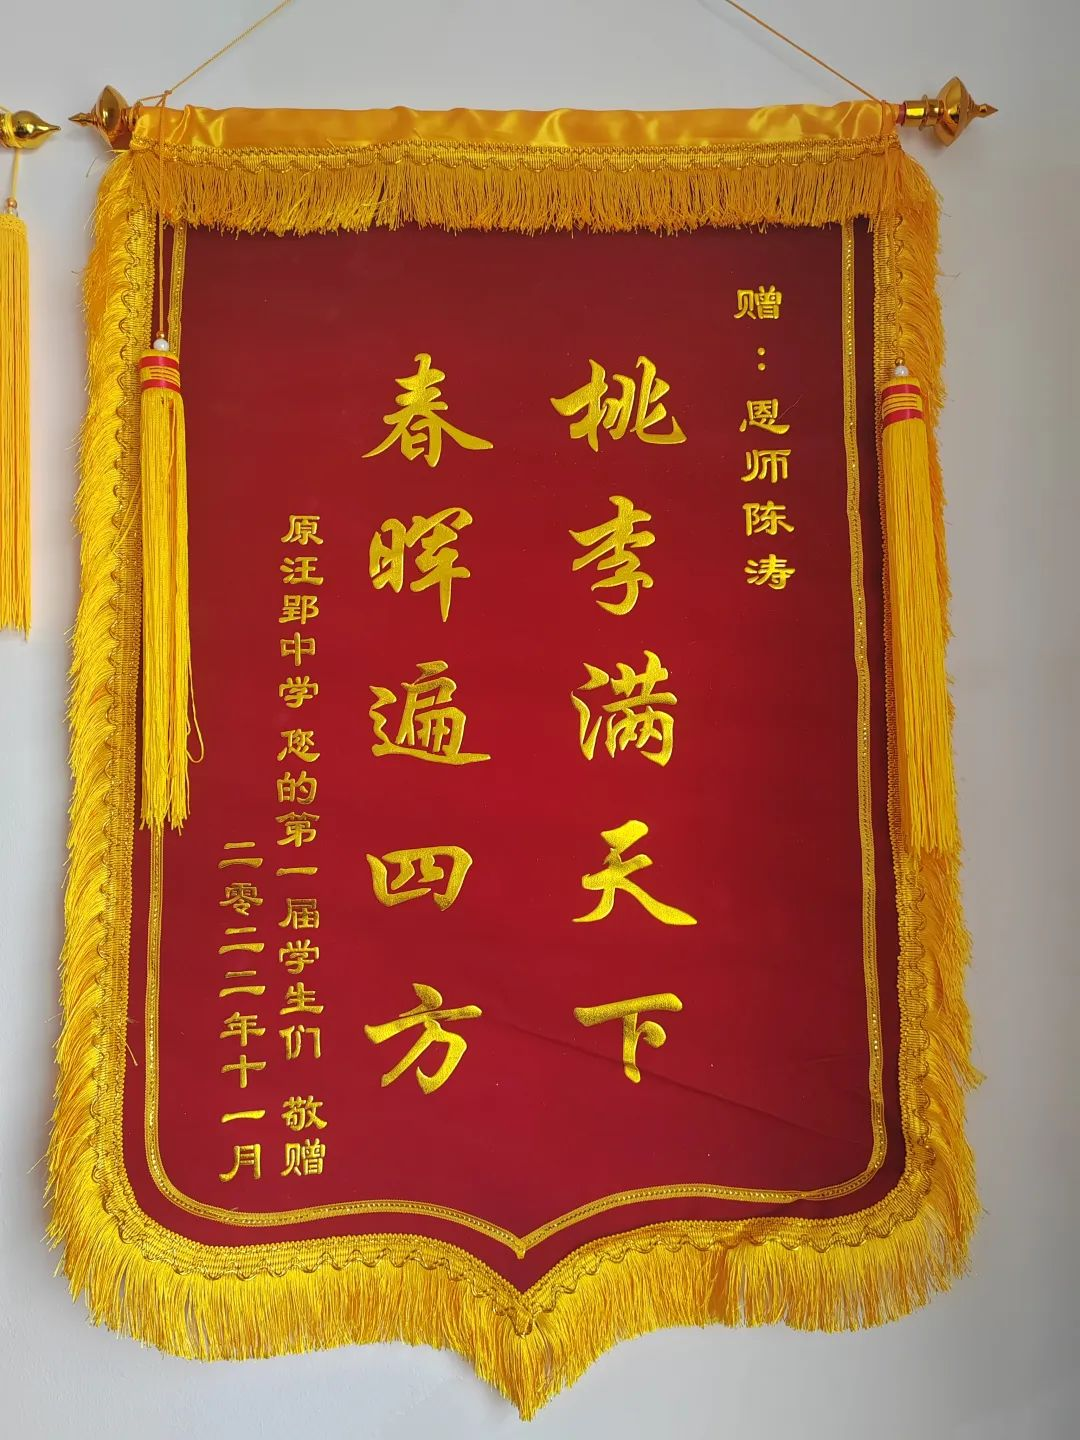 赠：恩师陈涛
桃李满天下
春晖遍四方
原汪郢中学 您的第一届学生们 敬赠
二零二二年十一月